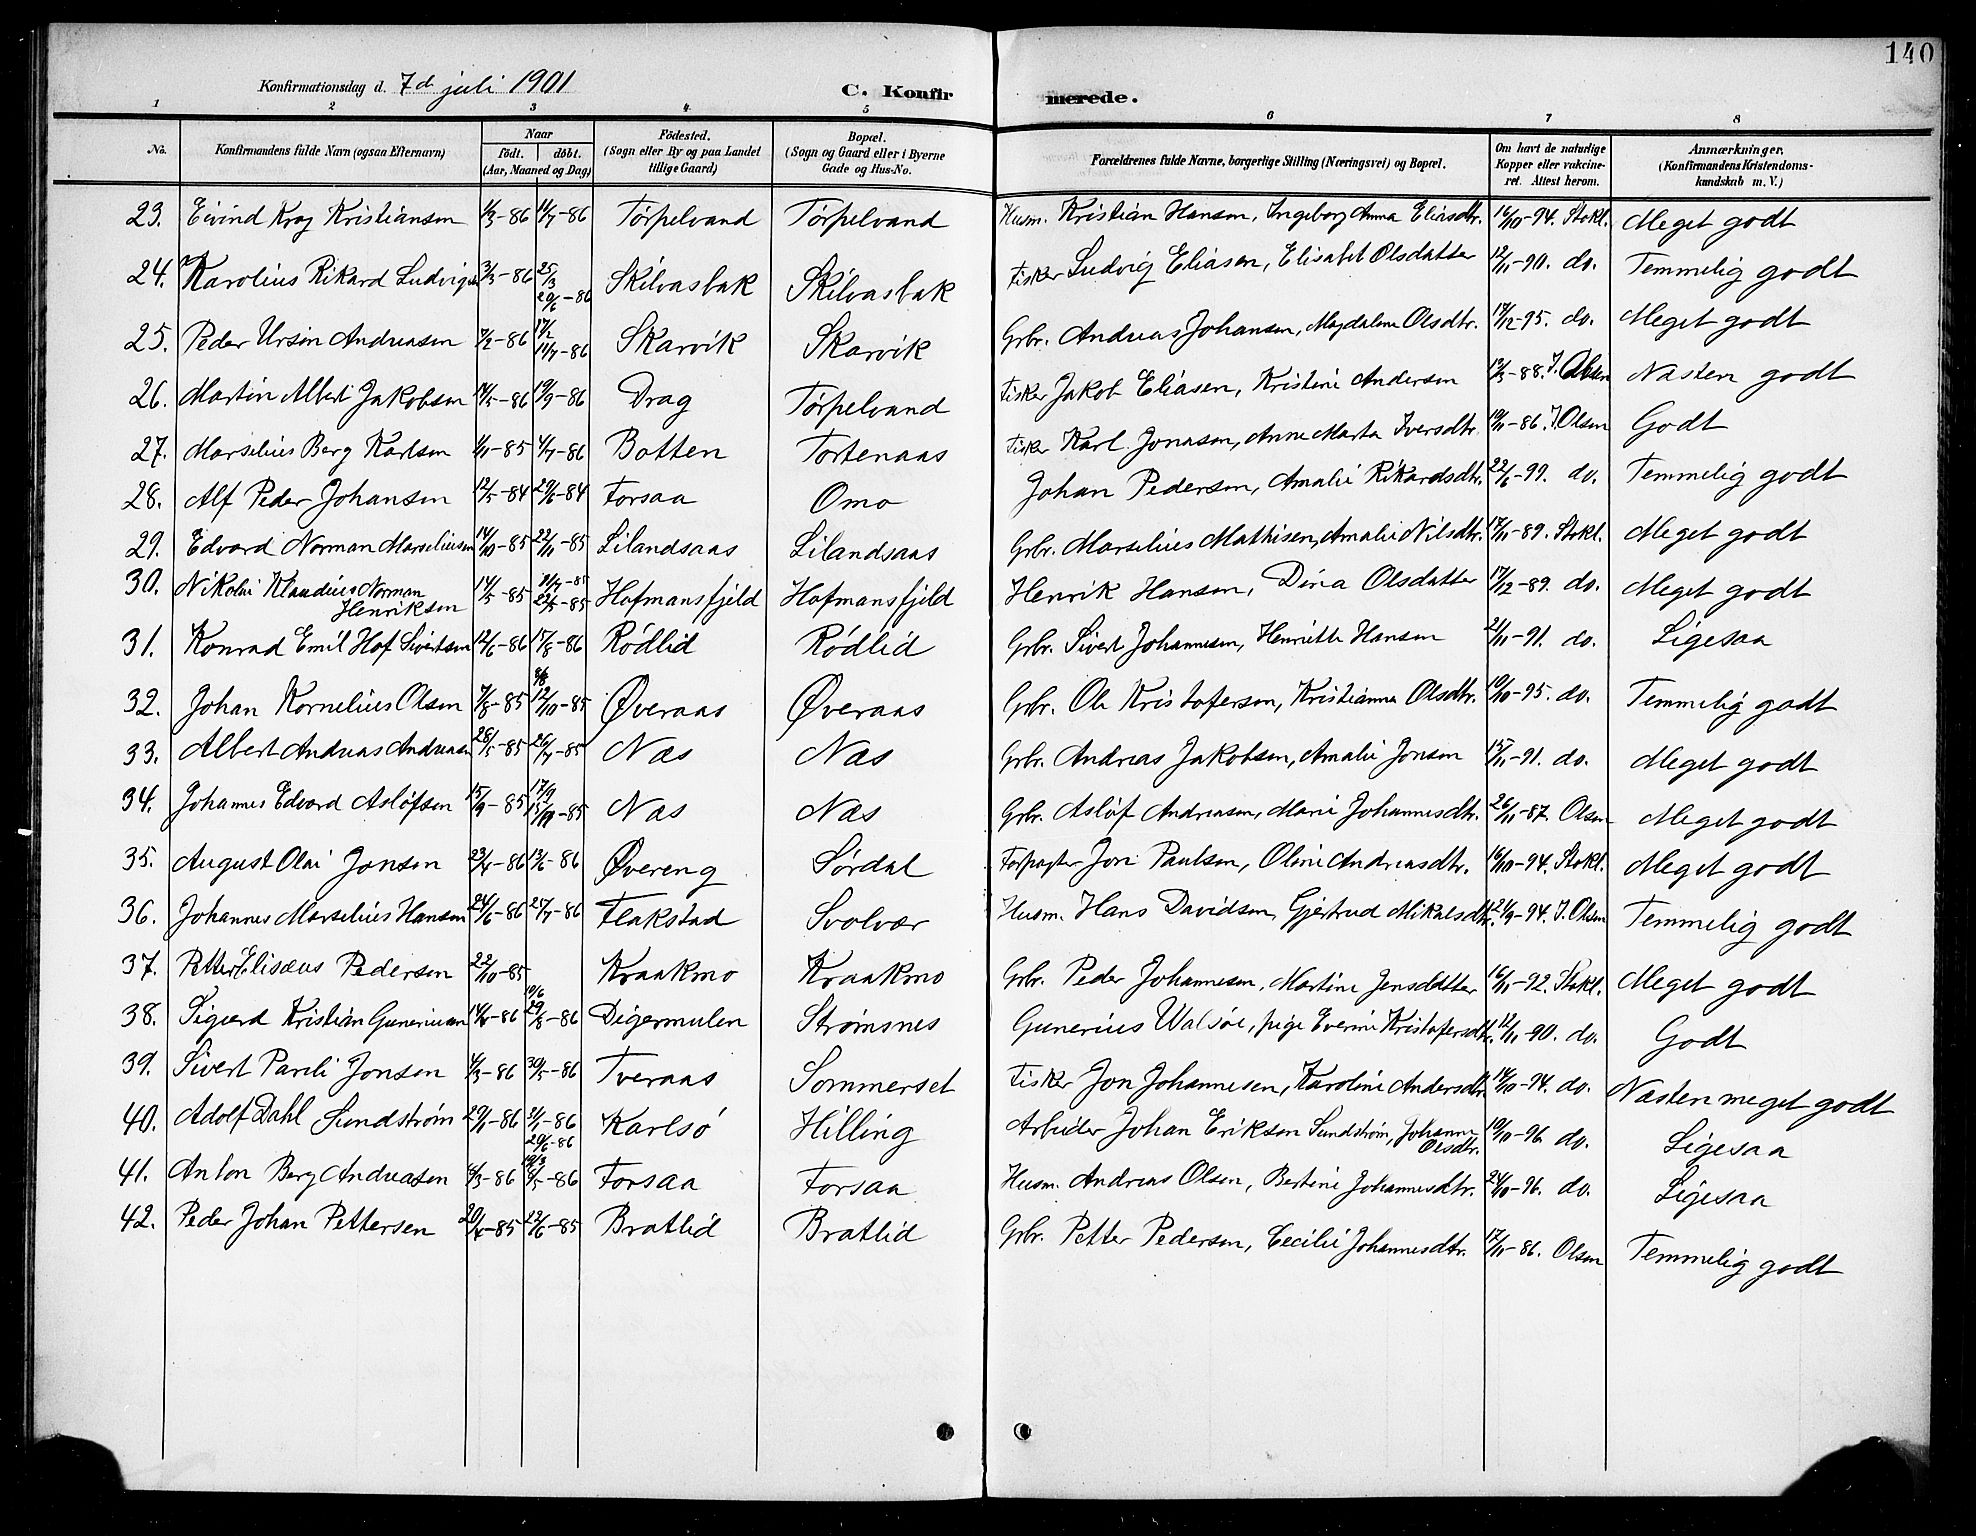 140
Konfirmationsdag d. 7d juli 1901
C. Konfirmerede.
1 2 3 4 5 6 7 8
No. Konfirmandens fulde Navn (ogsaa Efternavn) Naar født. døbt. (Aar, Maaned og Dag) Fødested. (Sogn eller By og paa Landet tillige Gaard) Bopæl. (Sogn og Gaard eller i Byerne Gade og Hus-No. Forældrenes fulde Navne, borgerlige Stilling (Næringsvei) og Bopæl. Om havt de naturlige Kopper eller vakcineret. Attest herom. Anmærkninger. (Konfirmandens Kristendomskundskab m. V.)
23. Eivind Krog Kristiansen 1/3-86 11/7-86 Tørpelvand Tørpelvand Husm. Kristian Hansen, Ingeborg Anna Eliasdtr. 16/10-94. Stokl. Meget godt
24. Karolius Rikard Ludvigsen 3/3-86 25/3 20/6-86 Skilvasbak Skilvasbak Fisker Ludvig Eliasen, Elisabet Olsdatter 12/11-90. do. Temmelig godt
25. Peder Ursin Andreasen 7/2-86 17/2 11/7-86 Skarvik Skarvik Grbr. Andreas Johansen, Magdalena Olsdtr. 17/12-95. do. Meget godt
26. Martin Albert Jakobsen 14/5-86 19/9-86 Drag Tørpelvand Fisker Jakob Eliasen, Kristine Andersen 12/3-88. J. Olsen Næsten godt
27. Marselius Berg Karlsen 1/11-85 4/7-86 Botten Tortenaas Fisker Karl Jonasen, Anne Marta Iversdtr. 19/11-86. J. Olsen Godt
28. Alf Peder Johansen 12/5-84 29/6-84 Forsaa Omo Johan Pedersen, Amalie Rikardsdtr. 22/6-99. do. Temmelig godt
29. Edvard Norman Marseliusen 14/10-85 22/11-85 Lilandsaas Lilandsaas Grbr. Marselius Mathisen, Amalie Nilsdtr. 17/11-89. Stokl. Meget godt
30. Nikolai Klaudius Norman Henriksen 14/5-85 22/5-85 Hofmansfjeld Hofmansfjeld Henrik Hansen, Dina Olsdatter 17/12-89. do. Meget godt
31. Konrad Emil Hof Sivertsen 12/6-86 15/8-86 Rødlid Rødlid Grbr. Sivert Johannesen, Henriette Hansen 21/11-91. do. Ligesaa
32. Johan Kornelius Olsen 7/8-85 9/8 12/10-85 Øveraas Øveraas Grbr. Ole Kristofersen, Kristianna Olsdtr. 19/10-95. do. Temmelig godt
33. Albert Andreas Andreasen 28/5-85 26/7-85 Næs Næs Grbr. Andreas Jakobsen, Amalie Jonsen 15/11-91. do. Meget godt
34. Johannes Edvard Asløfsen 15/9-85 17/9 -85 Næs Næs Grbr. Asløf Andreasen, Marie Johannesdtr. 26/11-87. Olsen Meget godt
35. August Olai Jonsen 23/4-86 13/6-86 Øvereng Sørdal Forpagter Jon Paulsen, Oline Andreasdtr. 16/10-94. Stokl. Meget godt
36. Johannes Marselius Hansen 24/6-86 25/7-86 Flakstad Svolvær Husm. Hans Davidsen, Gjertrud Mikalsdtr. 21/9-94. J. Olsen Temmelig godt
37. Petter Elisæus Pedersen 22/10-85 Kraakmo Kraakmo Grbr. Peder Johannesen, Martine Jensdatter 16/11-92. Stokl. Meget godt
38. Sigurd Kristian Guneriusen 14/5-86 10/6 29/8-86 Digermulen Strømsnes Gunerius Walsøe, pige Everine Kristofersdtr. 12/11-90. do. Godt
39. Sivert Pareli Jonsen 4/3-86 30/5-86 Tveraas Sommerset Fisker Jon Johannesen, Karoline Andersdtr. 14/10-94. do. Næsten meget godt
40. Adolf Dahl Sundstrøm 29/1-86 31/1-86 20/6-86 Karlsø Hilling Arbeider Johan Erikson Sundstrøm, Johanne Olsdtr. 19/10-96. do. Ligesaa
41. Anton Berg Andreasen 6/3-86 19/3 8/5-86 Forsaa Forsaa Husm. Andreas Olsen, Bertine Johannesdtr. 24/10-96. do. Ligesaa
42. Peder Johan Pettersen 20/4-85 23/6-85 Bratlid Bratlid Grbr. Petter Pedersen, Cecilie Johannesdtr. 17/11-86. Olsen Temmelig godt